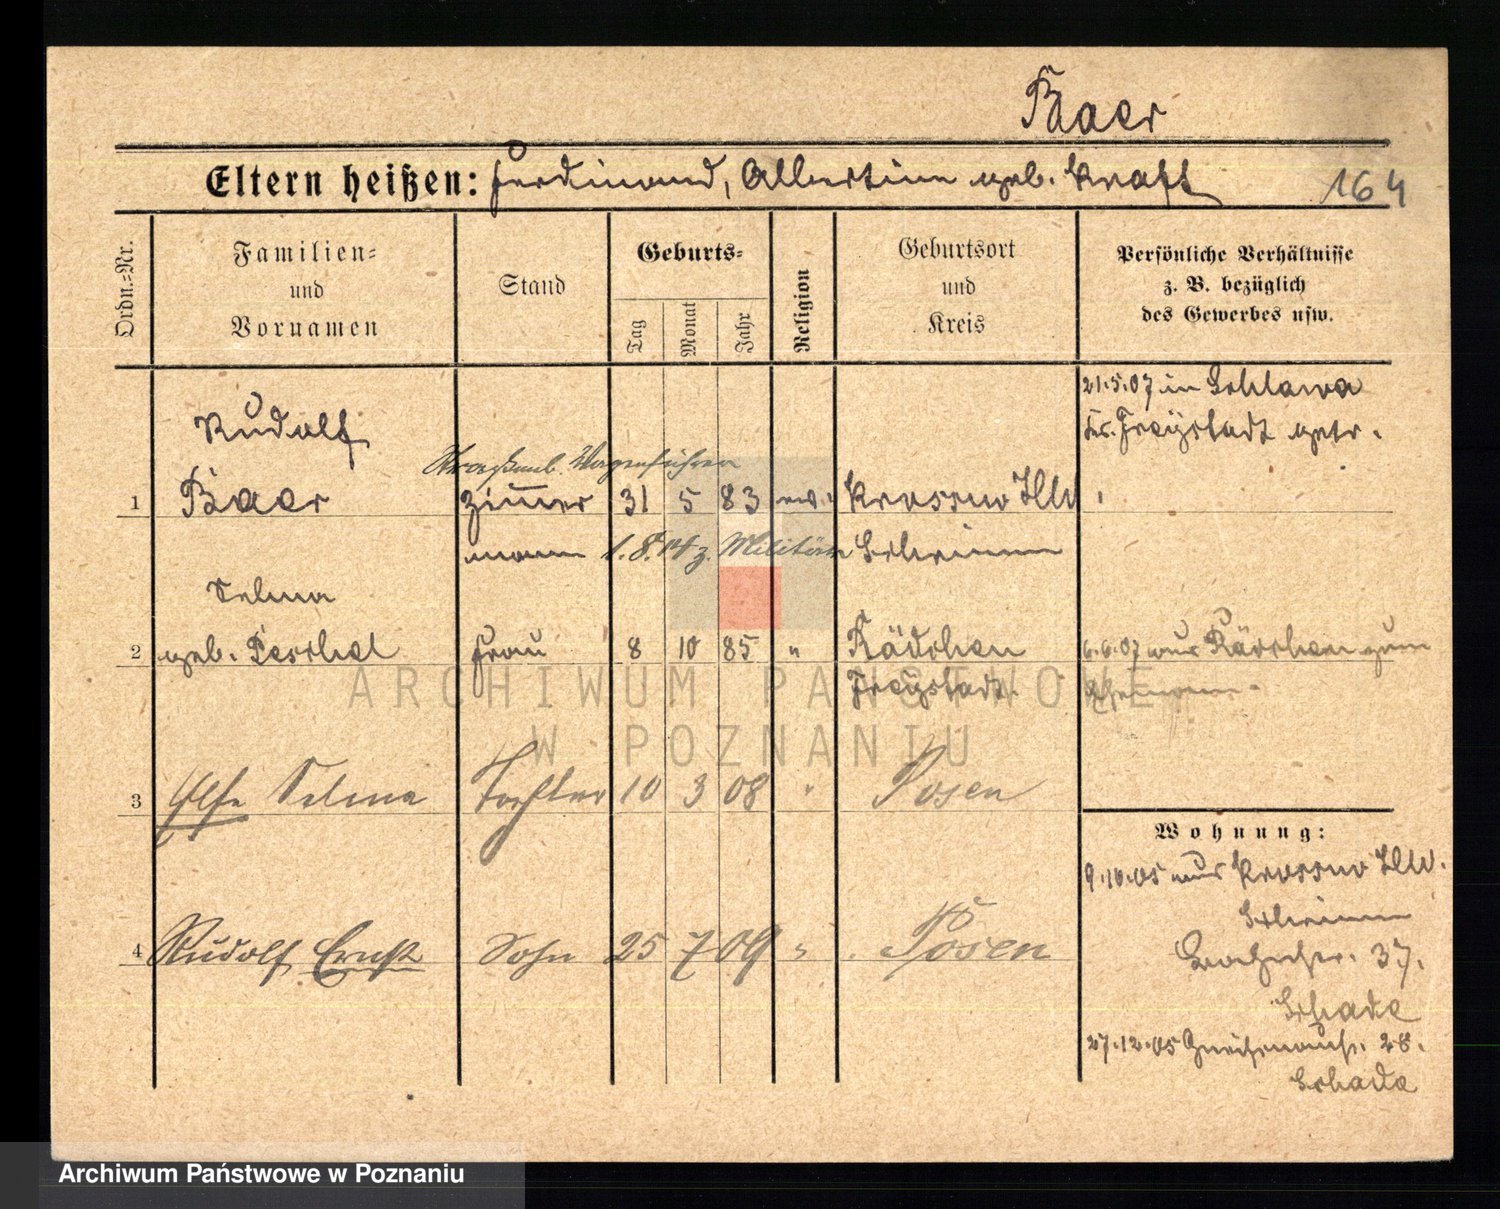 Baer
Eltern heißen: Ferdinand, Albertine geb. Kraft
164
Ordn.-Nr.
Familien-
und
Vornamen
Stand
Geburts-
Tag
Monat
Jahr
Religion
Geburtsort
und
Kreis
Persönliche Verhältnisse
z. B. bezüglich
des Gewerbes usw.
21.5.07 in Schlawa
Kr. Freystadt getr.
Rudolf
Straßenb. Wagenführer
1 Baer Zimmer 31 5 83 ev. Krossno Hld
mann 1.8.14 z. Militär Schrimm
Selma
2 geb. Peschel Frau 8 10 85 " Rädchen
Freystadt.
6.6.07 aus Rädchen zum
Ehemann.
3 Else Selma Tochter 10 3 08 " Posen
4 Rudolf Ernst Sohn 25 7 09 " Posen
Wohnung:
9.10.05 aus Krossno Hld.
Schrimm
37.
Schade
27.12.05 Gneisenaustr. 28.
Schade
ARCHIWUM PAŃSTWOWE
W POZNANIU
Archiwum Państwowe w Poznaniu